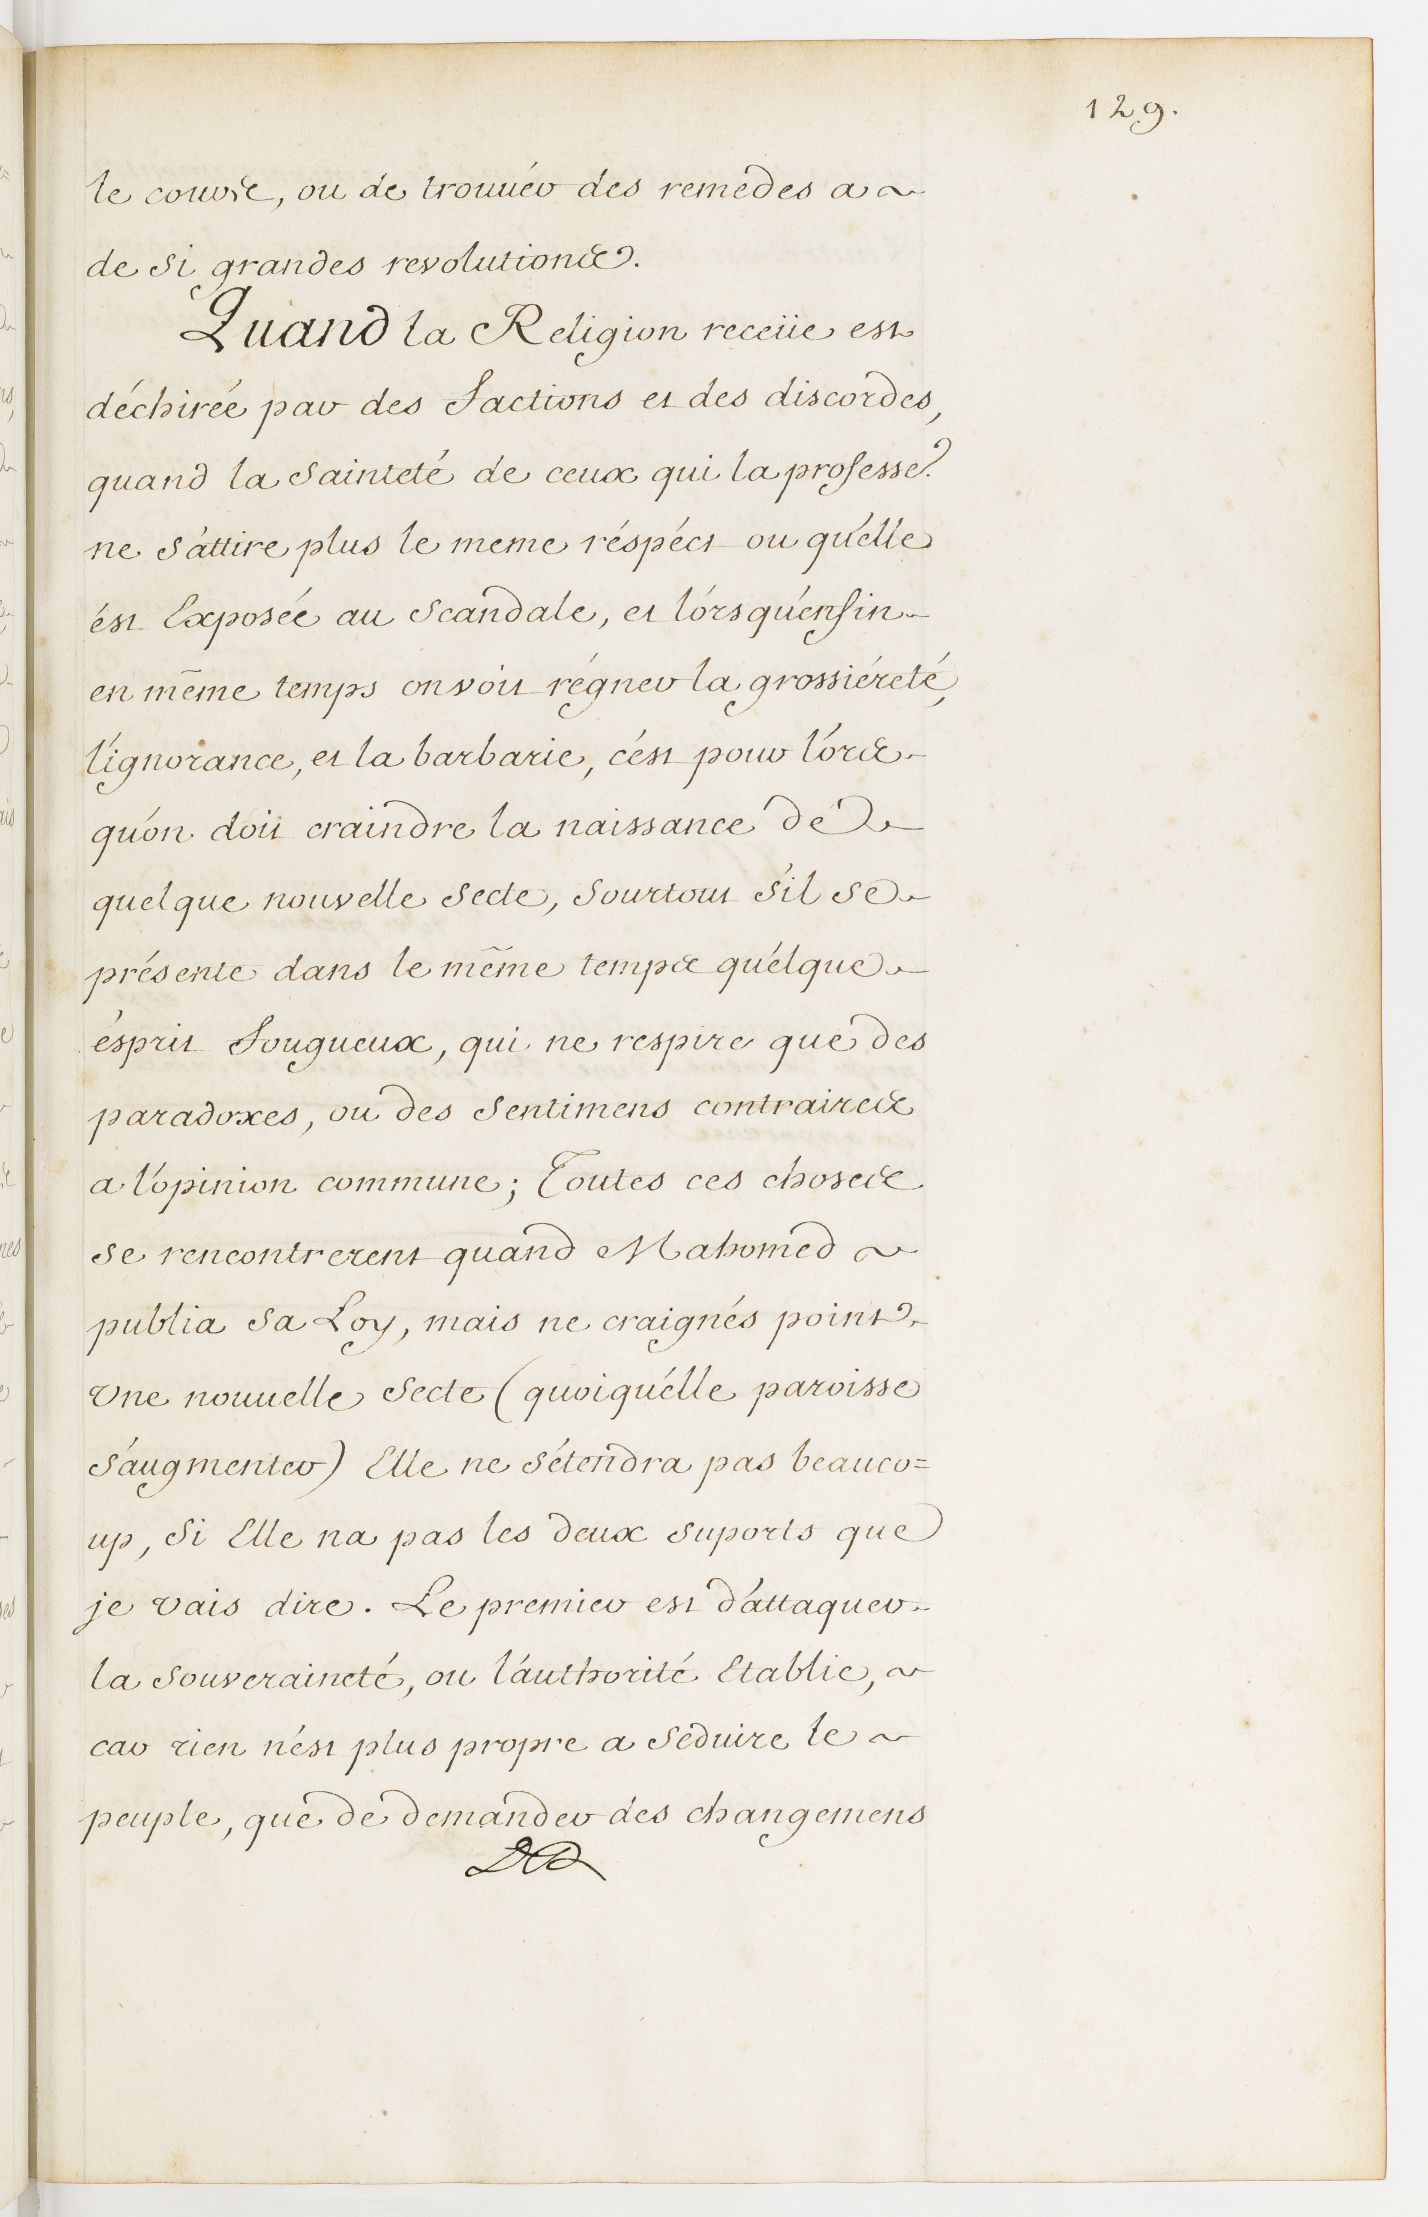 129.
le cours, ou de trouuér des remedes a
de si grandes revolutions.
Quand la Religion receüe est
déchirée par des factions et des discordes,
quand la sainteté de ceux qui la professe
ne s'áttire plus le meme réspéct ou qu'élle
ést Exposée au scandale, et lórsqu'énfin
en mēme temps on voit régner la grossiéreté,
l'ignorance, et la barbarie, c'ést pour lórs
qu'ón doit craindre la naissance de
quelque nouvelle secte, sourtout s'il se
présente dans le mēme temps quélque
ésprit fougueux, qui ne respire que des
paradoxes, ou des sentimens contraires
a l'ópinion commune; Toutes ces choses
se rencontrerent quand Mahomed
publia sa Loy, mais ne craignés point
vne nouuelle secte (quoiqu'élle paroisse
s'áugmenter) Elle ne s'étendra pas beauco=
up, si Elle na pas les deux suports que
je vais dire. Le premier est d'áttaquer
la souveraineté, ou l'áuthorité Etablie,
car rien n'ést plus propre a séduire le
peuple, que de demander des changemens